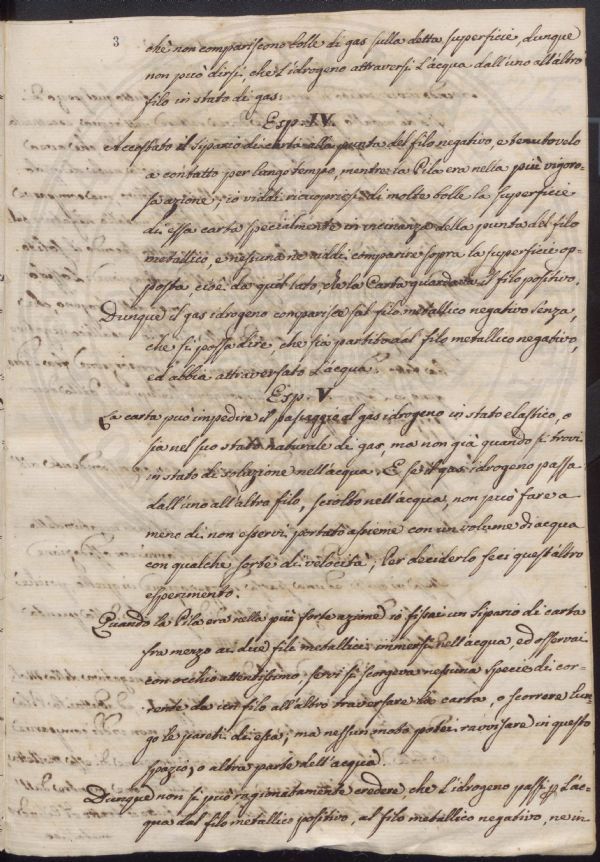 3
chè non compariscono bolle di gas sulla detta superficie, dunque
non può dirsi, che l'idrogeno attraversi l'acqua dall'uno all'altro
filo in stato di gas.
Esp. IV.
Accostato il sipario di carta alla punta del filo negativo, e tenutovelo
a contatto per lungo tempo, mentre la Pila era nella più vigoro-
sa azione; io viddi ricuoprirsi di molte bolle la superficie
di essa carta specialmente in vicinanza della punta del filo
metallico, e nessuna ne viddi comparire sopra la superficie op-
posta cioè da quel lato, che la Carta guardava il filo positivo.
Dunque il gas idrogeno comparisce sul filo metallico negativo senza,
che si possa dire, che sia partito dal filo metallico negativo,
ed abbia attraversato l'acqua.
Esp. V.
La carta può impedire il passaggio al gas idrogeno in stato elastico, o
sia nel suo stato naturale di gas, ma non già quando si trovi
in stato di soluzione nell'acqua. E se il gas idrogeno passa
dall'uno all'altro filo, sciolto nell'acqua, non può fare a
meno di non esservi portato assieme con un volume di acqua
con qualche sorte di velocità; Per deciderlo feci quest'altro
esperimento.
Quando la Pila era nella più forte azione io fissai un sipario di carta
fra mezzo ai due fili metallici immersi nell'acqua, ed osservai
con occhio attentissimo, se ivi si scorgeva nessuna specie di cor-
rente da un filo all'altro traversare la carta, o scorrere lun-
go le pareti di essa; ma nessun moto potei ravvisare in questo
spazio, o altra parte dell'acqua.
Dunque non si può ragionatamente credere che l'idrogeno passi p. l'ac-
qua dal filo metallico positivo, al filo metallico negativo, ne in